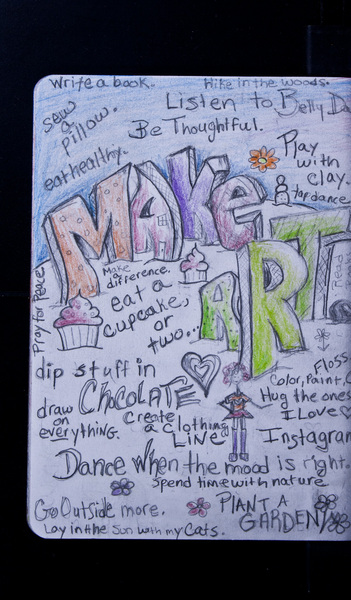 Write a book.
Hike in the woods.
Listen to Belly Da
sew
a
pillow.
Be Thoughtful.
eat healthy.
Play
with
clay.
tap dance
MAKe
ART
Pray for Peace
Make
a
difference.
eat a
cupcake,
or
two...
dip stuff in
CHOCOLATE
Floss
Color, Paint,
Hug the ones
I Love
draw
on
everything.
Create
a Clothing
LiNe
Instagram
Dance when the mood is right.
Spend time with nature
Go Outside more.
PLANT A
GARDEN
Lay in the Sun with my Cats.